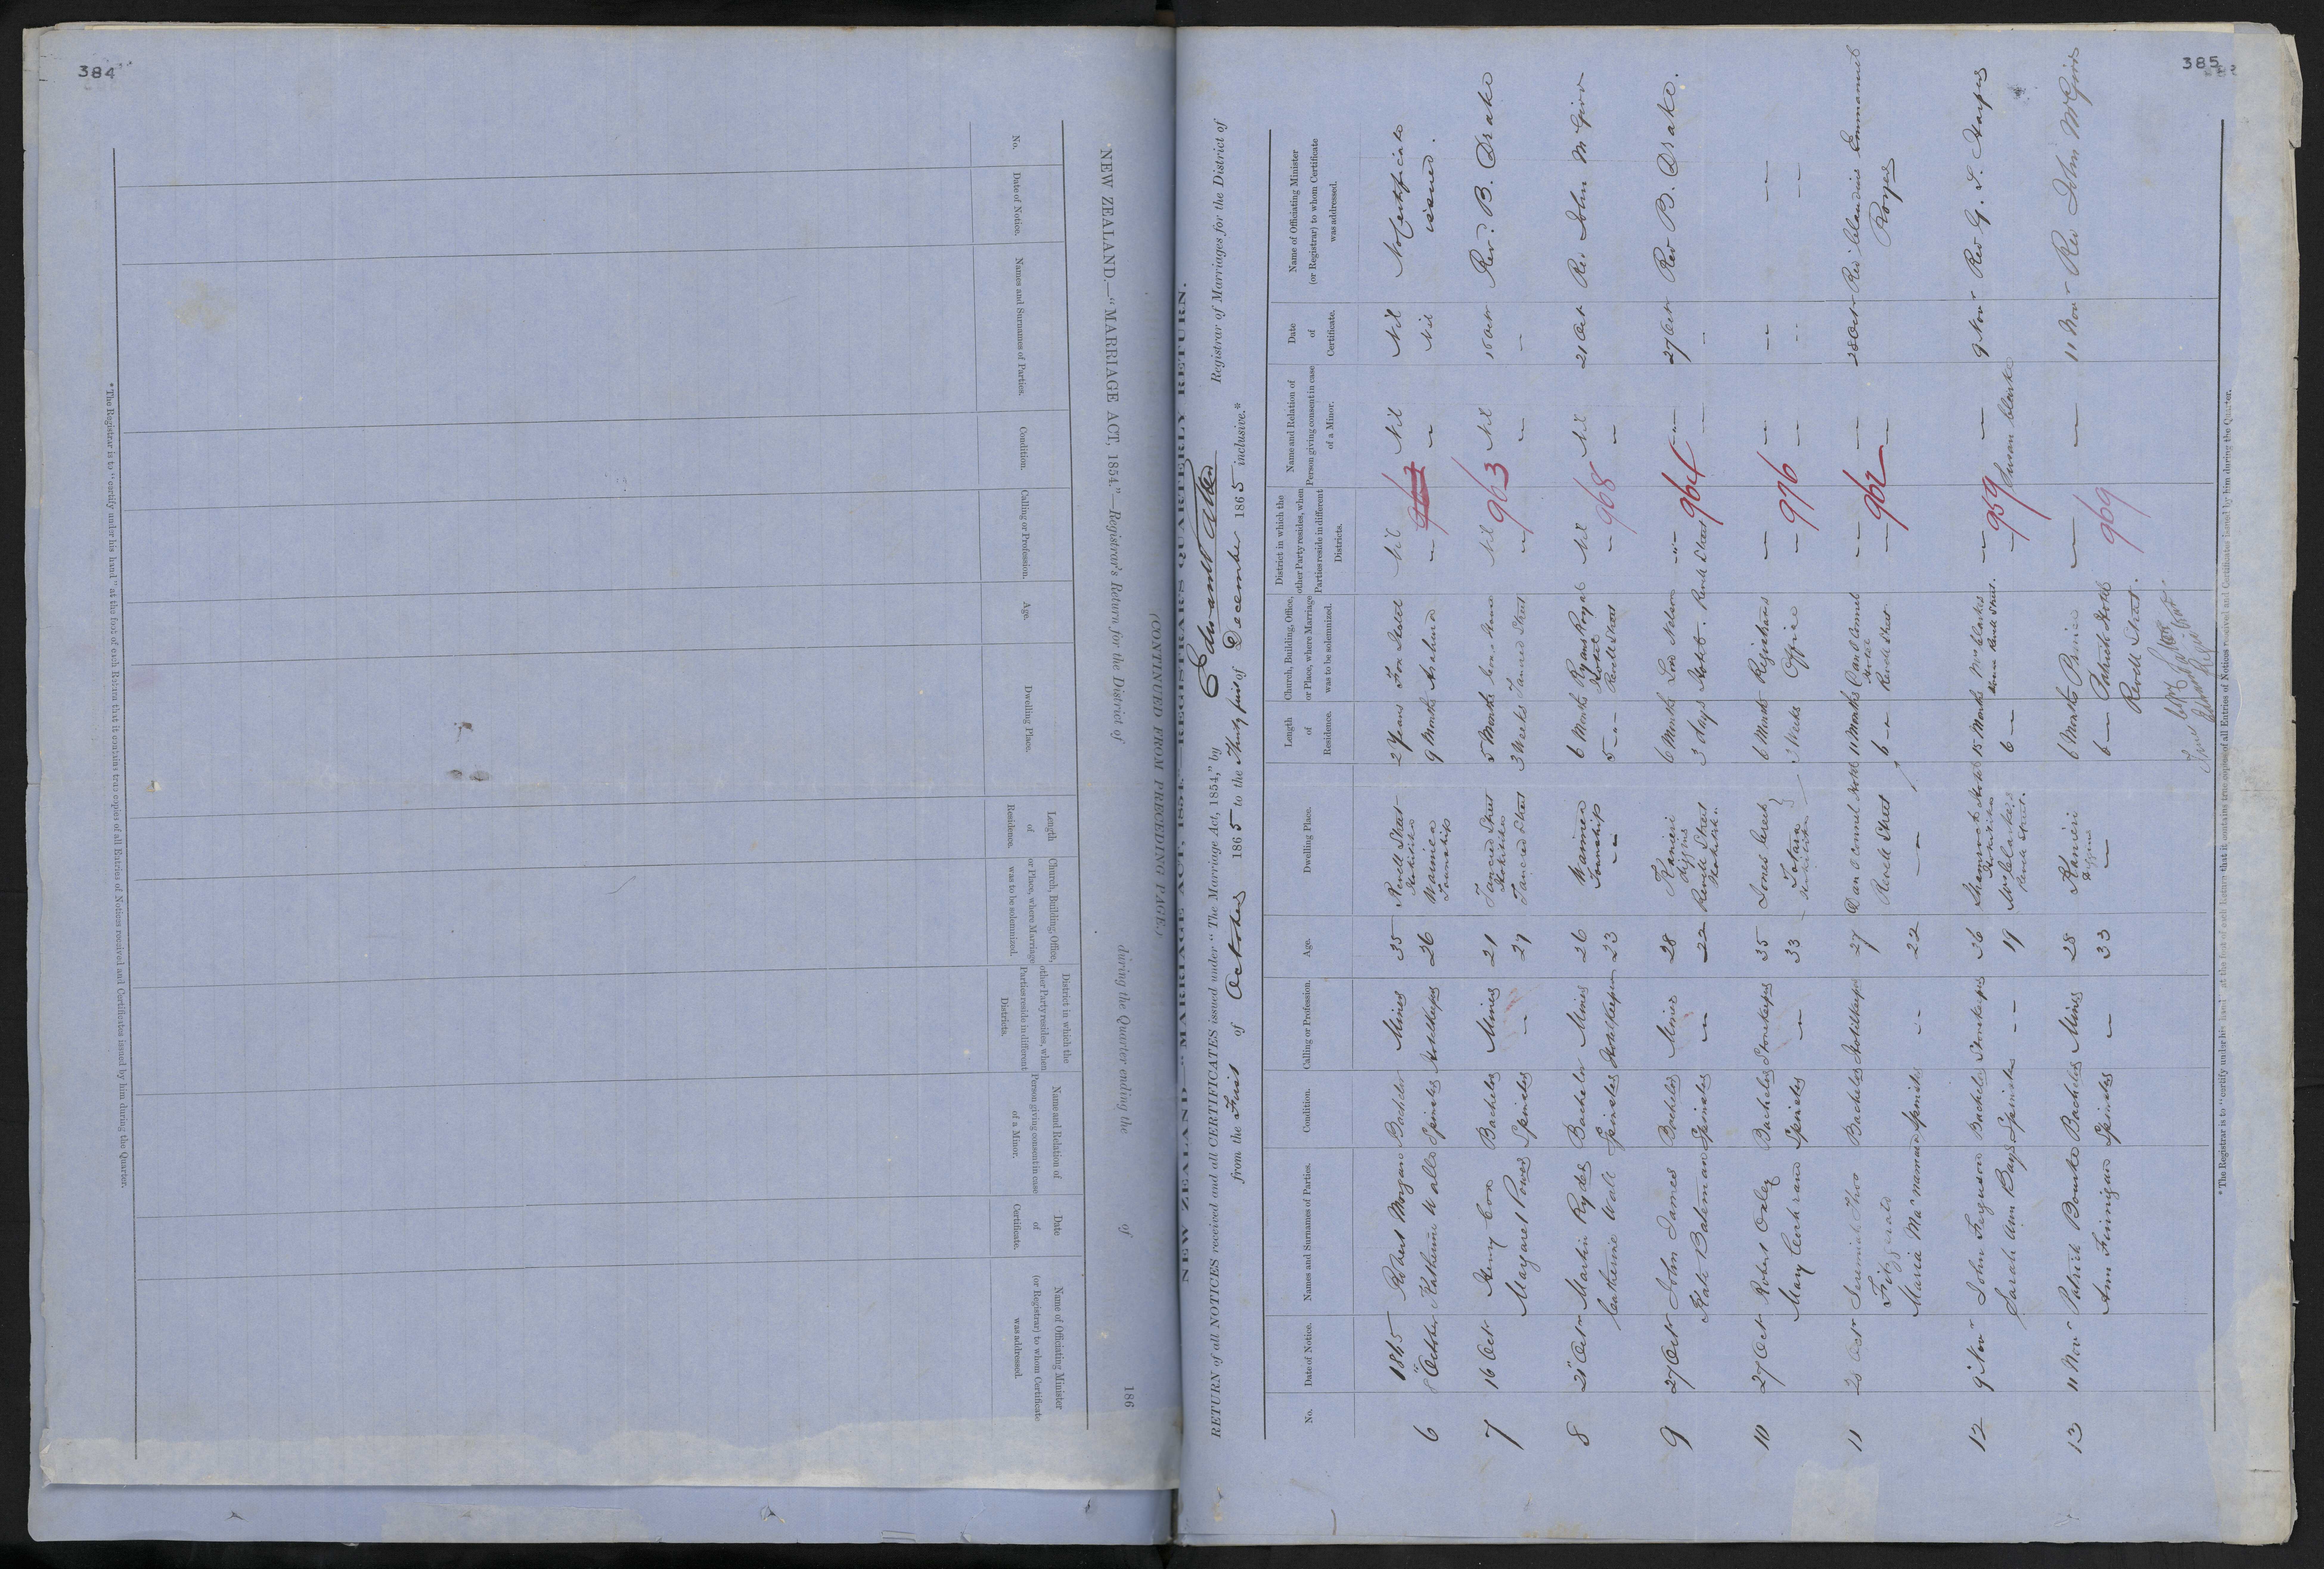 384
NEW ZEALAND.—"MARRIAGE ACT, 1854."—Registrar's Return for the District of during the Quarter ending the of 186
No.
Date of Notice.
Names and Surnames of Parties.
Condition.
Calling or Profession.
Age.
Dwelling Place.
Length of Residence.
Church, Building, Office, or Place, where Marriage was to be solemnized.
District in which the other Party resides, when Parties reside in different Districts.
Name and Relation of Person giving consent in case of a Minor.
Date of Certificate.
Name of Officiating Minister (or Registrar) to whom Certificate was addressed.
*The Registrar is to "certify under his hand" at the foot of each Return that it contains true copies of all Entries of Notices received and Certificates issued by him during the Quarter.
385
(CONTINUED FROM PRECEDING PAGE.)
NEW ZEALAND—"MARRIAGE ACT, 1854."—REGISTRAR'S QUARTERLY RETURN.
RETURN of all NOTICES received and all CERTIFICATES issued under "The Marriage Act, 1854," by Edward Registrar of Marriages for the District of
from the First of October 1865 to the Thirty first of December 1865 inclusive.*
No.
Date of Notice.
Names and Surnames of Parties.
Condition.
Calling or Profession.
Age.
Dwelling Place.
Length of Residence.
Church, Building, Office, or Place, where Marriage was to be solemnized.
District in which the other Party resides, when Parties reside in different Districts.
Name and Relation of Person giving consent in case of a Minor.
Date of Certificate.
Name of Officiating Minister (or Registrar) to whom Certificate was addressed.
1865 Robert Morgan Bachelor Miner 35 Revell Street Hokitika 2 Years Nil Nil Nil No Certificate
6 8 October Katherine Walls Spinster Hotelkeeper 26 Waimea Township 9 Months — — Nil issued.
7 16 Oct Henry Cox Bachelor Miner 21 Tancred Street Hokitika 5 Months Nil 963 Nil 16 Octr Rev. B. Drake
Margaret Power Spinster — 27 Tancred Street 3 Weeks Tancred Street — — —
8 21 Octr Martin Ryder Bachelor Miner 26 Waimea Township 6 Months Ryans Royal Hotel Nil 968 Nil 21 Oct Rev John McGirr
Catherine Wall Spinster Hotelkeeper 23 — 5 — Revell Street — —
9 27 Octr John James Bachelor Miner 28 Kanieri Diggings 6 Months Lord Nelson — 964 — 27 Octr Rev B. Drake.
Kate Bateman Spinster — 22 Revell Street Hokitika 3 days Hotel - Revell Street — —
10 27 Oct Robert Oxley Bachelor Storekeeper 35 Jones Creek 6 Month Registrars — 976 — —
Mary Cochrane Spinster — 33 Totara Hokitika 3 Weeks Office — — — —
11 28 Octr Jeremiah Thos Fitzgerald Bachelor Hotelkeeper 27 Dan O Connel Hotel Revell Street 11 Months Dan O Connel Hotel — 962 — 28 Octr Rev Claudius Emmanuel
Maria MacNamara Spinster — 22 — 6 — Revell Street — —
12 9 Novr John Ferguson Bachelor Storekeeper 36 Shamrock Hotel Hokitika 15 Months Mrs Clarkes House Revell Street. — 959 — 9 Novr Rev G. L. Harper
Sarah Ann Bays Spinster — 19 Mrs Clarkes Revell Street. 6 — — Susan Clarke
13 11 Novr Patrick Bourke Bachelor Miner 28 Kanieri Diggings 6 Months — 969 — 11 Novr Rev John McGirr
Ann Finnigan Spinster — 33 — 6 — Patricks Hotel
Revell Street.
*The Registrar is to "certify under his hand" at the foot of each Return that it contains true copies of all Entries of Notices received and Certificates issued by him during the Quarter.